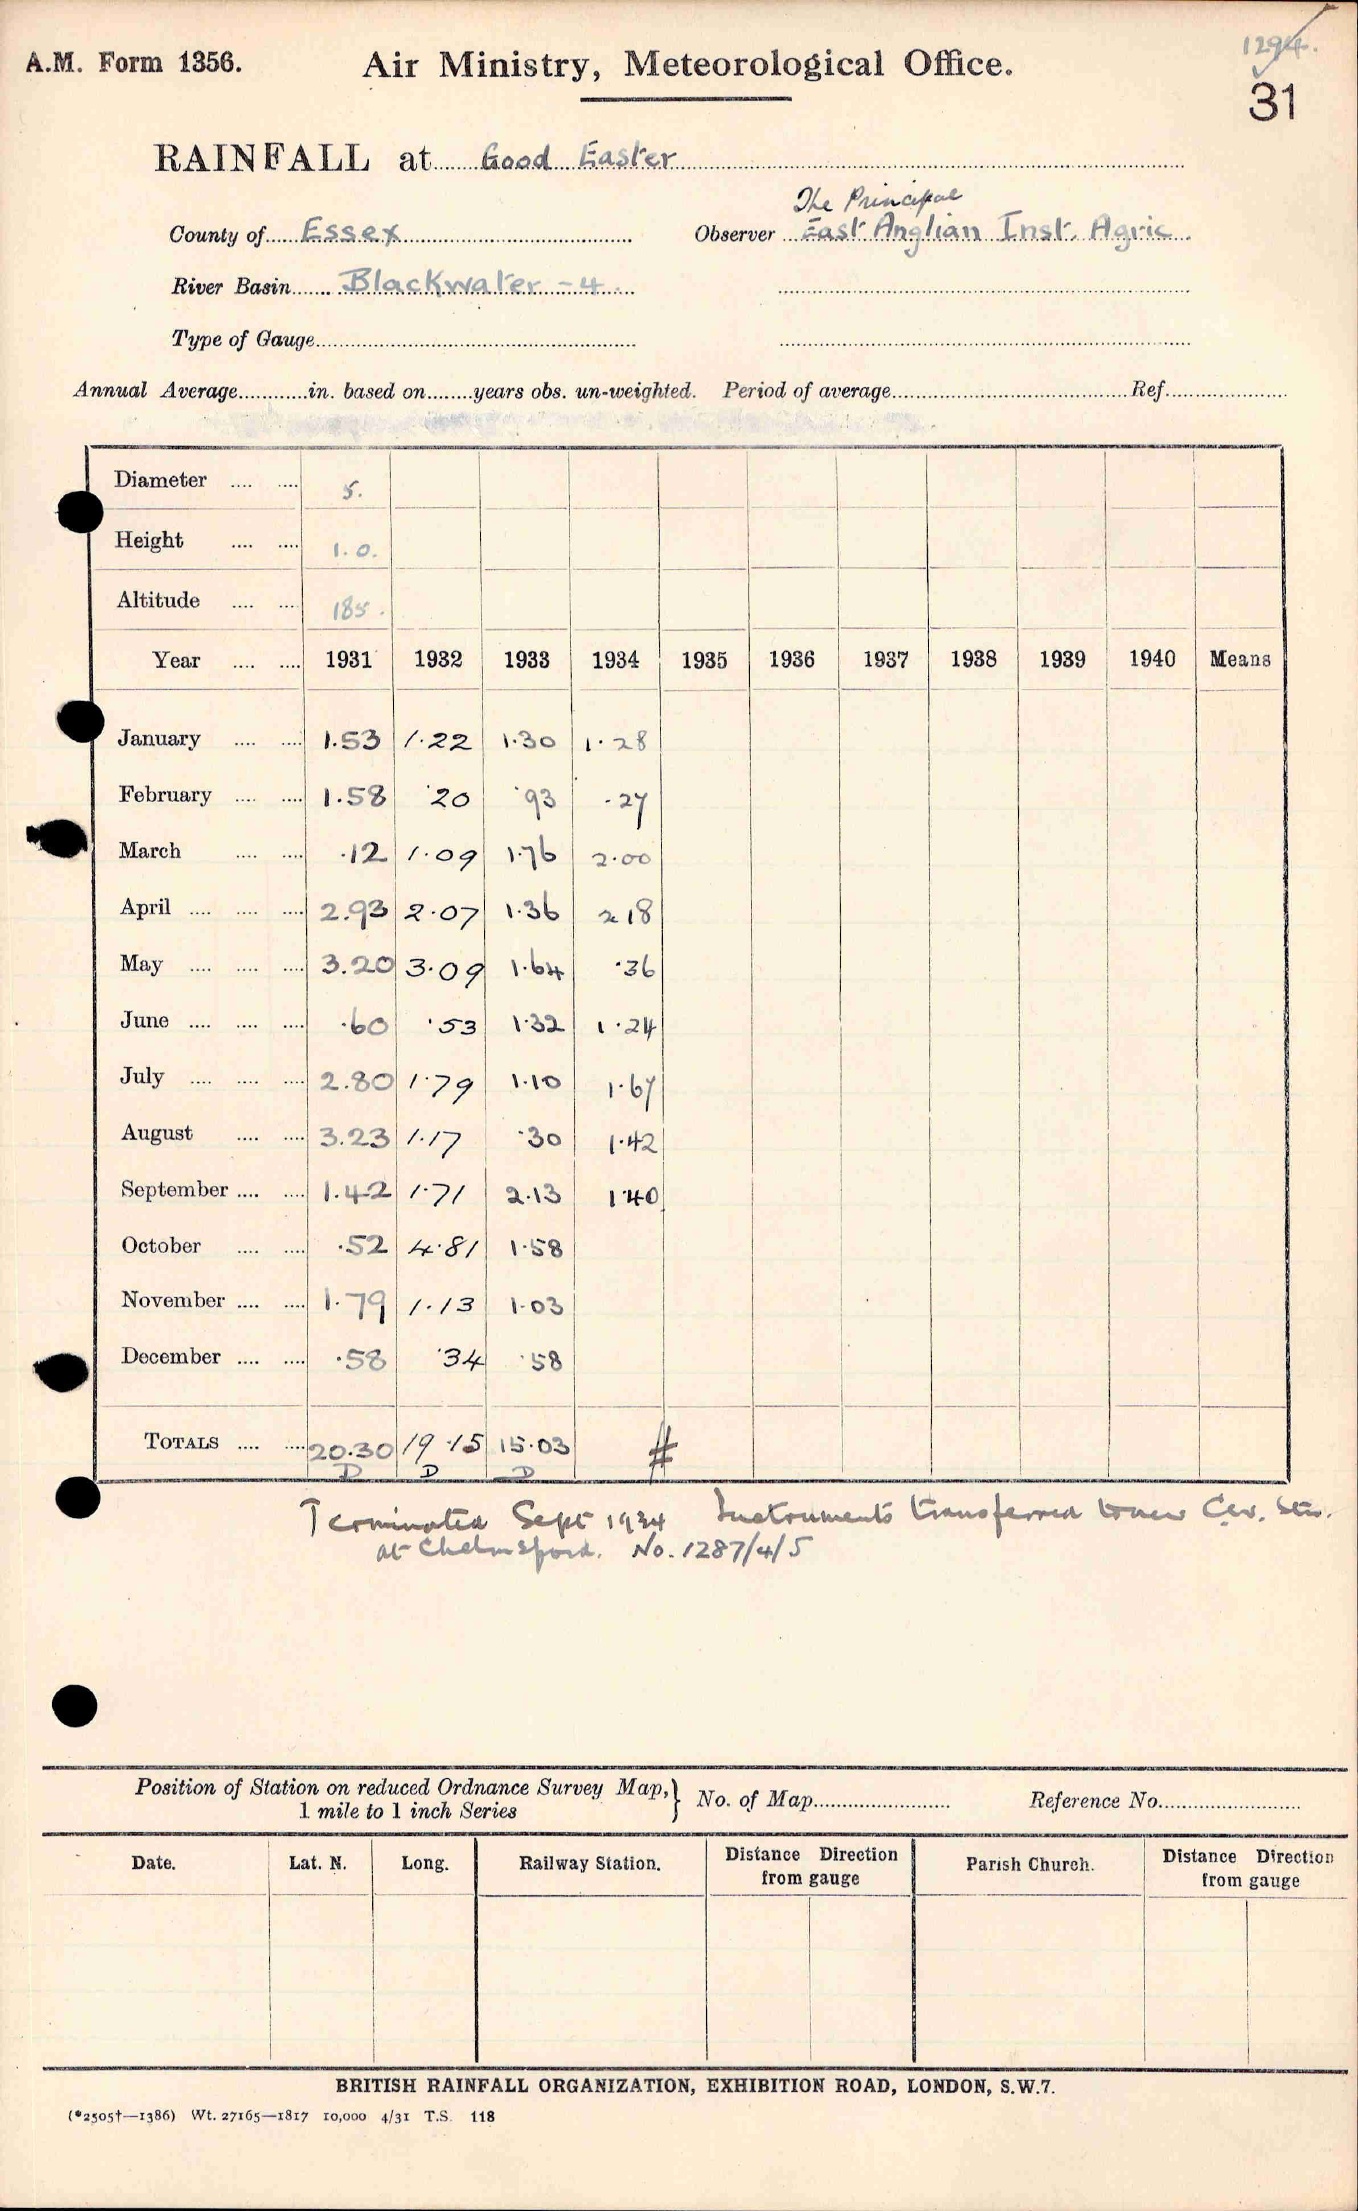 A.M. Form 1356.
Air Ministry, Meteorological Office.
1294.
31
RAINFALL at Good Easter
The Principal
County of Essex Observer East Anglian Inst. Agric.
River Basin Blackwater - 4.
Type of Gauge
Annual Average in. based on years obs. un-weighted. Period of average Ref.
Diameter 5.
Height 1.0.
Altitude 185.
Year 1931 1932 1933 1934 1935 1936 1937 1938 1939 1940 Means
January 1.53 1.22 1.30 1.28
February 1.58 .20 .93 .27
March .12 1.09 1.76 2.00
April 2.93 2.07 1.36 2 18
May 3.20 3.09 1.64 .36
June .60 .53 1.32 1.24
July 2.80 1.79 1.10 1.67
August 3.23 1.17 .30 1.42
September 1.42 1.71 2.13 1.40
October .52 4.81 1.58
November 1.79 1.13 1.03
December .58 .34 .58
TOTALS 20.30 19.15 15.03 #
D D D
Terminated Sept 1934 Instruments transferred to new Stn.
at Chelmsford. No. 1287/4/5
Position of Station on reduced Ordnance Survey Map,} No. of Map Reference No.
1 mile to 1 inch Series
Date. Lat. N. Long. Railway Station. Distance Direction from gauge Parish Church. Distance Direction from gauge
BRITISH RAINFALL ORGANIZATION, EXHIBITION ROAD, LONDON, S.W.7.
(*2505†—1386) Wt. 27165—1817 10,000 4/31 T.S. 118